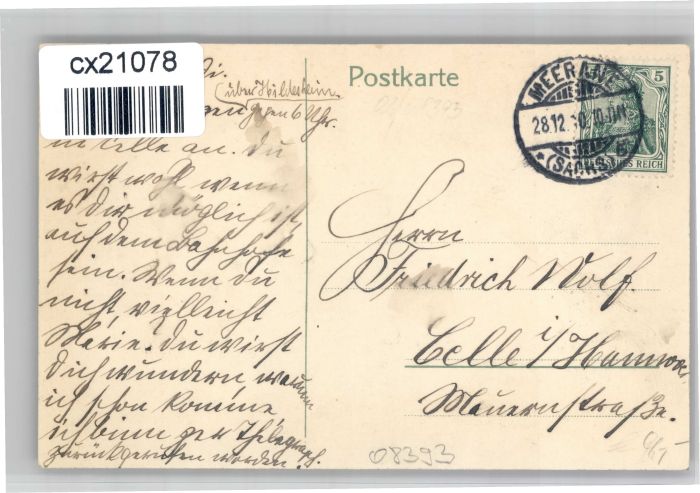 cx21078
Postkarte
(über Hildesheim.
gegen 6 Uhr.
in Celle an. Du
wirst wohl wenn
es dir möglich ist,
auf dem Bahnhofe
sein. Wenn du
nicht, vielleicht
Marie. Du wirst
dich wundern, warum
ich schon komme
ich binn per Thelegraph.
zurückgerufen worden.
MEERANE
28.12.10. 10-11N
* (SACHS) B
5
REICH
Herrn
Friedrich Wolf.
Celle i/Hannov.
Mauernstraße.
08393